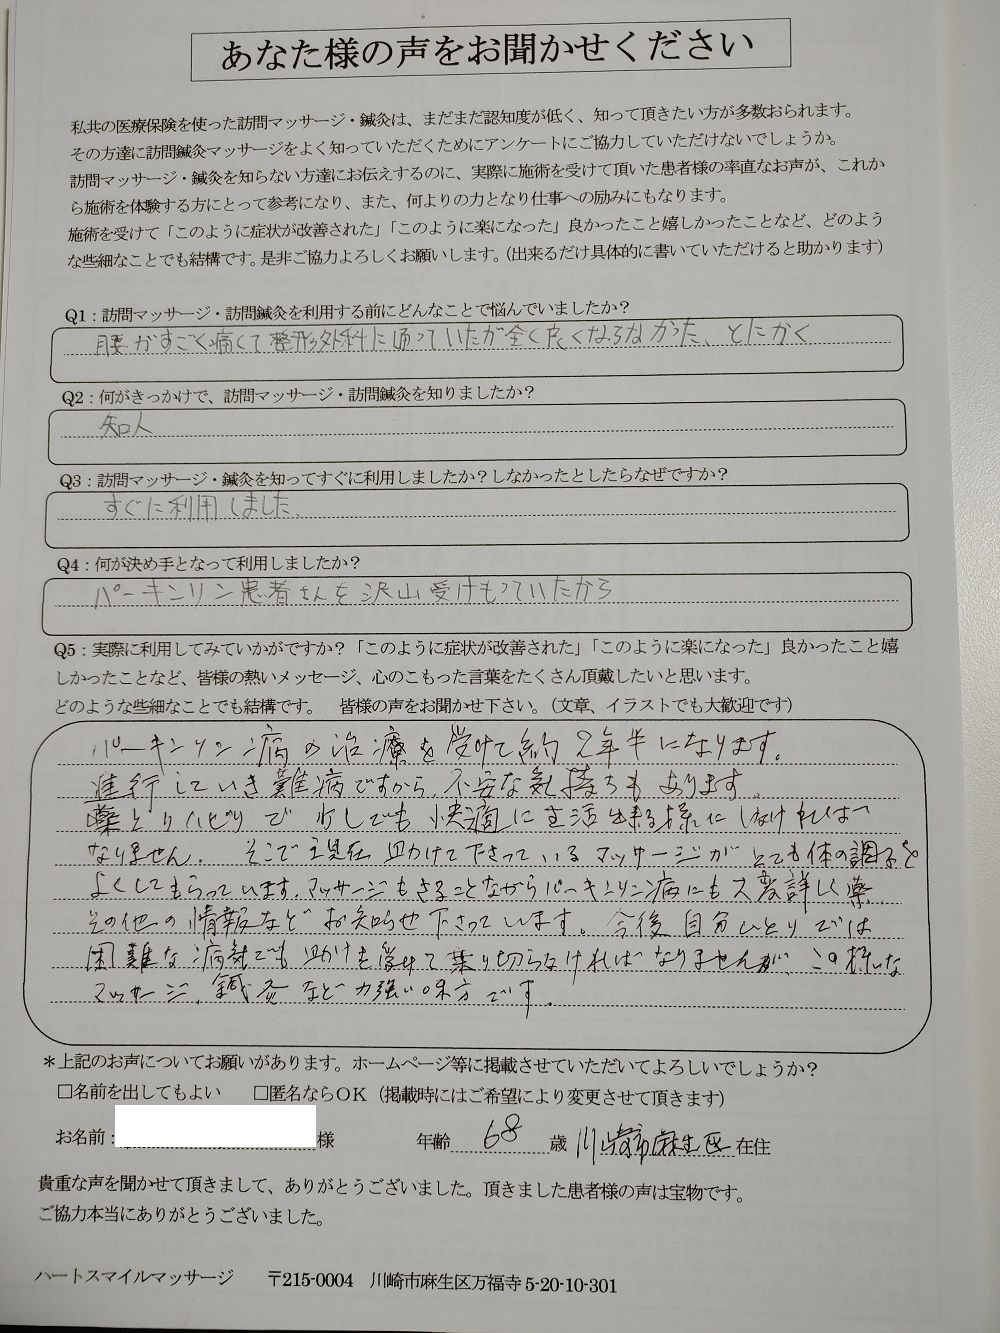 あなた様の声をお聞かせください
私共の医療保険を使った訪問マッサージ・鍼灸は、まだまだ認知度が低く、知って頂きたい方が多数おられます。
その方達に訪問鍼灸マッサージをよく知っていただくためにアンケートにご協力していただけないでしょうか。
訪問マッサージ・鍼灸を知らない方達にお伝えするのに、実際に施術を受けて頂いた患者様の率直なお声が、これか
ら施術を体験する方にとって参考になり、また、何よりの力となり仕事への励みにもなります。
施術を受けて「このように症状が改善された」「このように楽になった」良かったこと嬉しかったことなど、どのよう
な些細なことでも結構です。是非ご協力よろしくお願いします。（出来るだけ具体的に書いていただけると助かります）
Q1：訪問マッサージ・訪問鍼灸を利用する前にどんなことで悩んでいましたか？
腰がすごく痛くて整形外科に通っていたが全く良くならなかった、とにかく
Q2：何がきっかけで、訪問マッサージ・訪問鍼灸を知りましたか？
知人
Q3：訪問マッサージ・鍼灸を知ってすぐに利用しましたか？しなかったとしたらなぜですか？
すぐに利用しました、
Q4：何が決め手となって利用しましたか？
パーキンソン患者さんを沢山受けもっていたから
Q5：実際に利用してみていかがですか？「このように症状が改善された」「このように楽になった」良かったこと嬉
しかったことなど、皆様の熱いメッセージ、心のこもった言葉をたくさん頂戴したいと思います。
どのような些細なことでも結構です。　皆様の声をお聞かせ下さい。（文章、イラストでも大歓迎です）
パーキンソン病の治療を受けて約2年半になります。
進行していき難病ですから、不安な気持ちもあります。
薬とリハビリで少しでも快適に生活出来る様にしなければ
なりません。そこで現在助けて下さっているマッサージがとても体の調子を
よくしてもらっています。マッサージもさることながらパーキンソン病にも大変詳しく薬
その他の情報などお知らせ下さっています。今後自分ひとりでは
困難な病気でも助けを受けて乗り切らなければなりませんが、この様な
マッサージ、鍼灸など力強い味方です。
＊上記のお声についてお願いがあります。ホームページ等に掲載させていただいてよろしいでしょうか？
□名前を出してもよい　□匿名ならOK（掲載時にはご希望により変更させて頂きます）
お名前：様　年齢 68 歳 川崎市麻生区 在住
貴重な声を聞かせて頂きまして、ありがとうございました。頂きました患者様の声は宝物です。
ご協力本当にありがとうございました。
ハートスマイルマッサージ　〒215-0004　川崎市麻生区万福寺 5-20-10-301